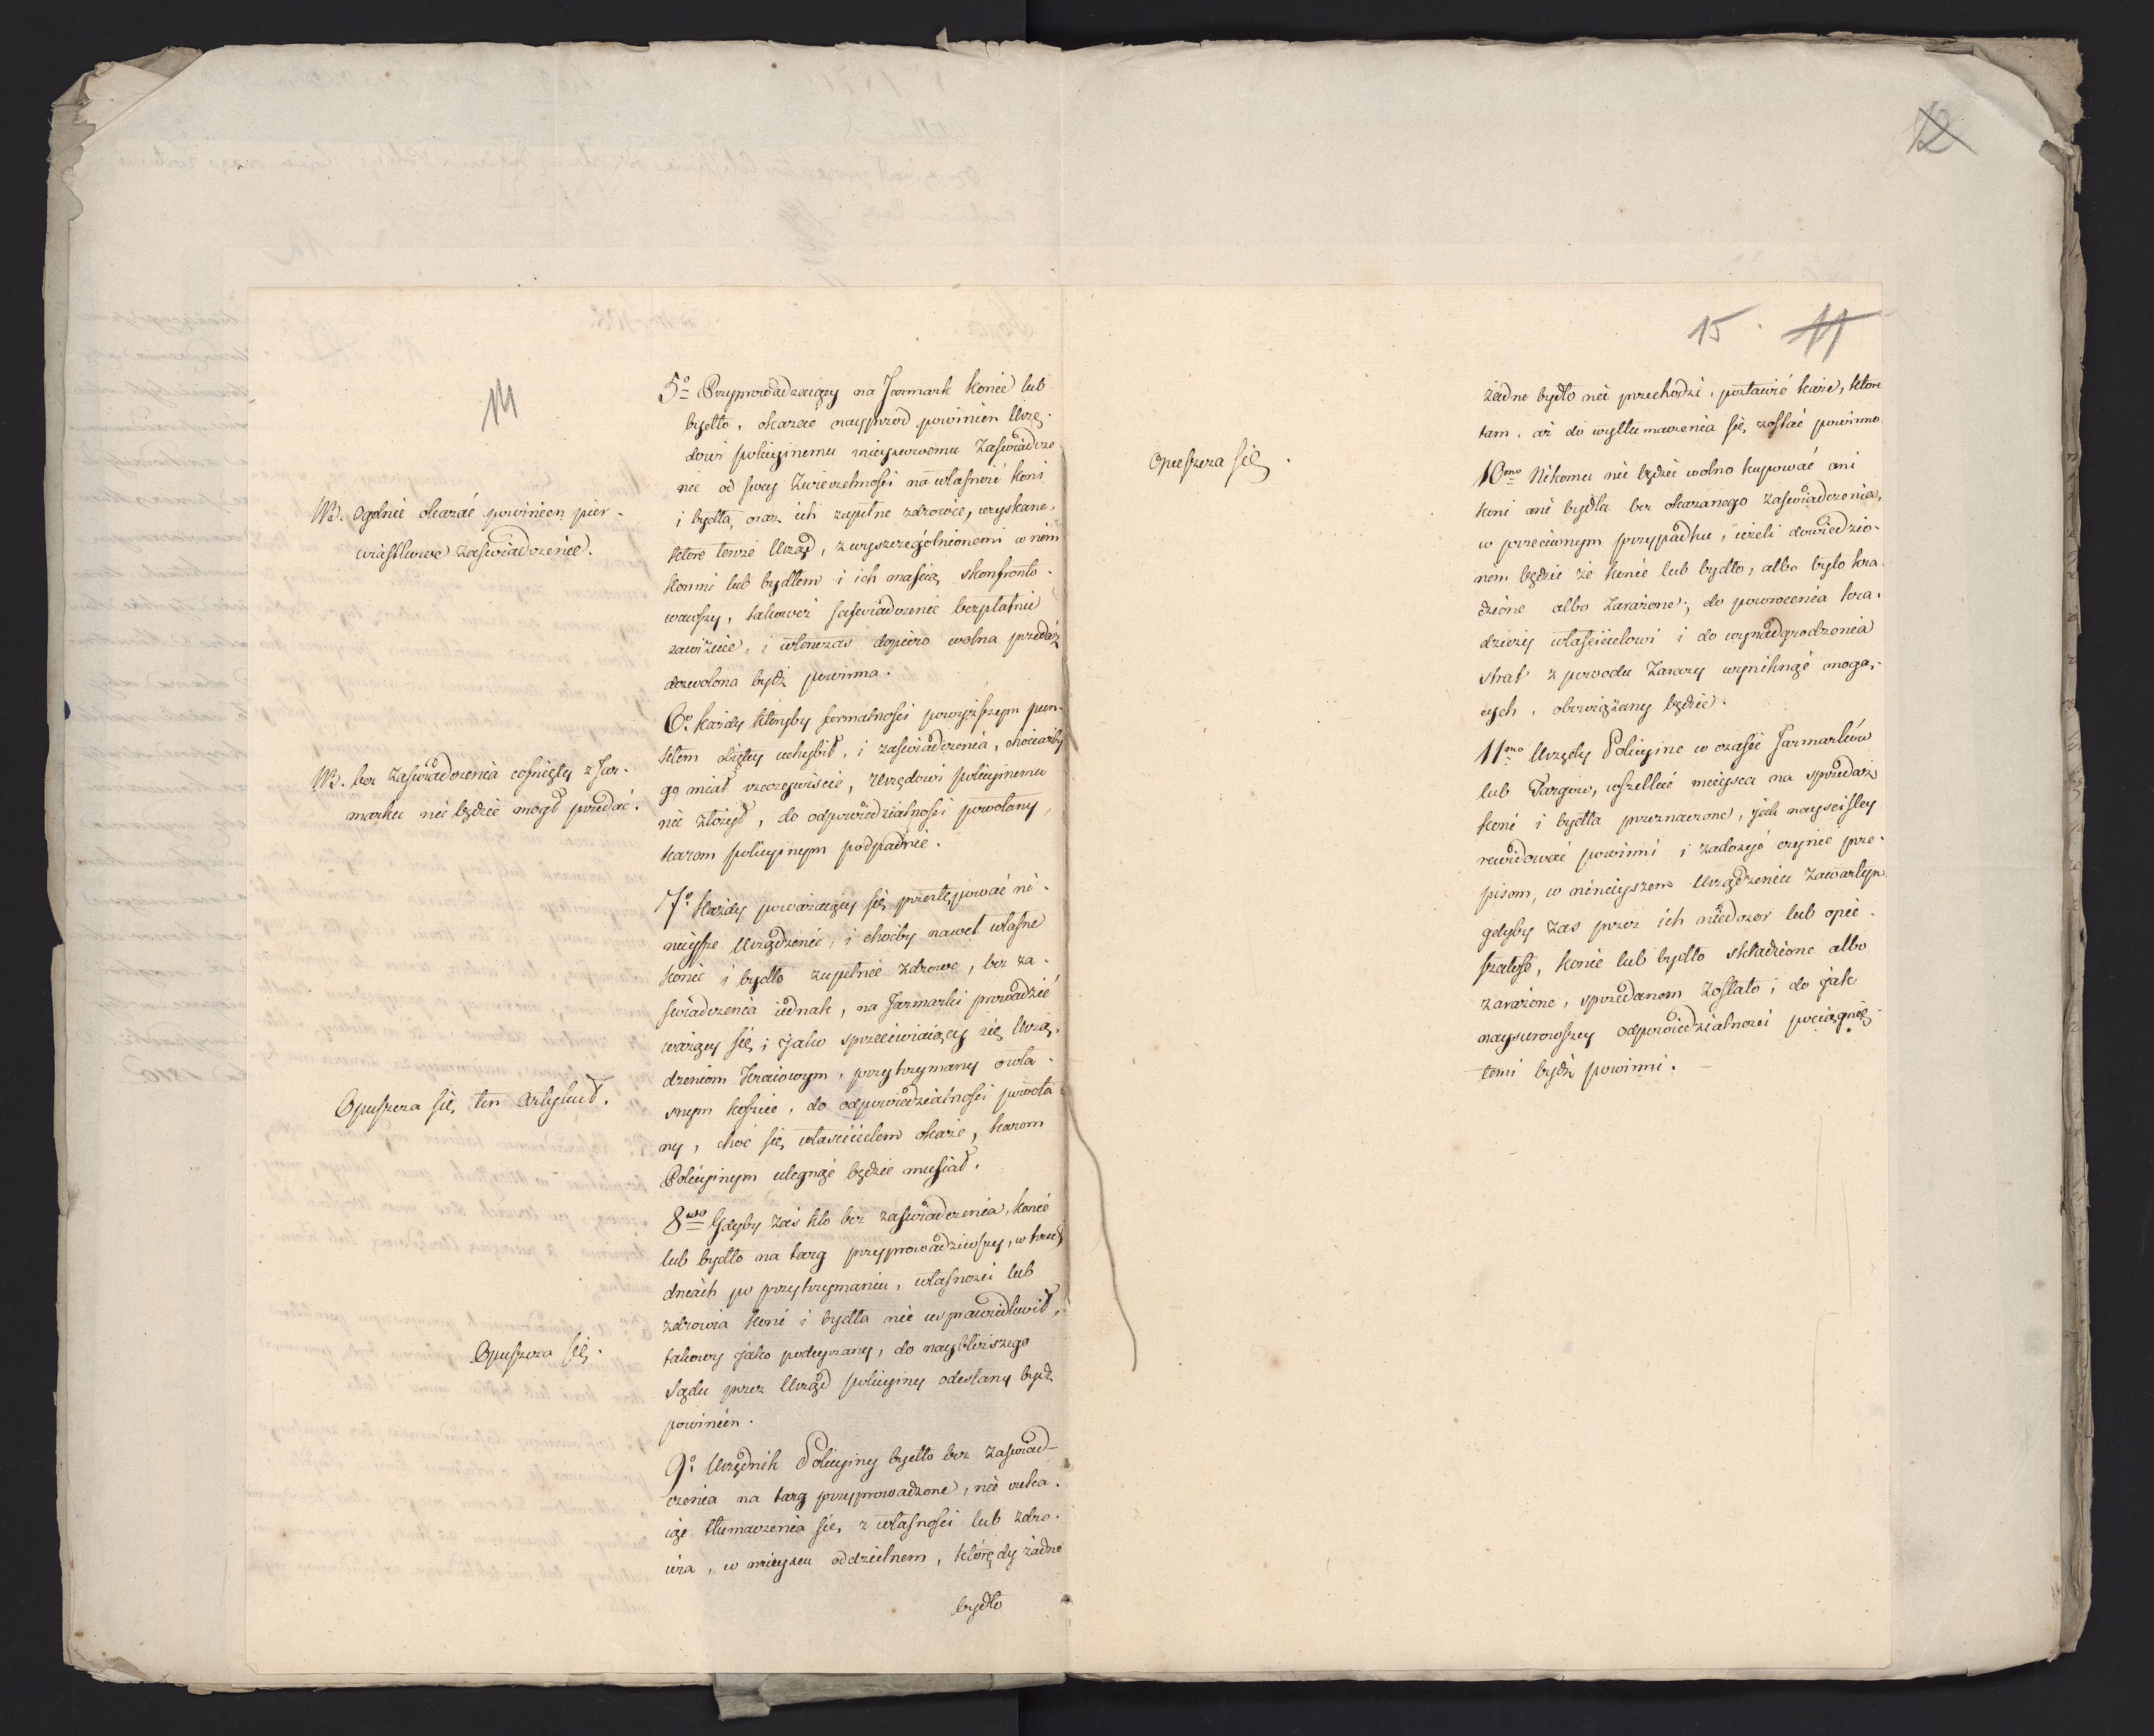 14
5º Przyprowadzaiący na Jarmark konie lub
bydło, okazać nayprzod powinien Urzę-
dowi policyinemu mieyscowemu Zaswiadcze
nie od swey Zwierzchności na własność koni
i bydła, oraz ich zupełne zdrowie, uzyskane,
ktore tenże Urząd, z wyszczególnionemi w nim
konmi lub bydłem i ich maścią skonfronto-
wawszy, takoweż zaswiadczenie bezpłatnie
zawiżuie, i wtonczas dopiero wolna przedaż
dozwolona bydź powinna.
NB. Ogolnie okazać powinien pier-
wiastkowe zaswiadczenie.
6º Każdy któryby formalności powyższym pun-
ktem obiętey uchybił, i zaswiadczenia, chociażby
go miał rzeczywiscie, Urzędowi policyinemu
nie złożył, do odpowiedzialności powołany,
karom policyinym podpadnie.
NB. bez Zaswiadczenia cofnięty z Jar-
marku nie będzie mogł przedać.
7º Każdy poważaiący się przestępować ni-
nieysze Urządzenie, i choćby nawet własne
konie i bydło zupełnie zdrowe, bez za-
świadczenia iednak, na Jarmarki prowadzić
ważący się, jako sprzeciwiaiący się Urzą-
dzeniom Kraiowym, przytrzymany o wła-
snym koszcie, do odpowiedzialności powoła
ny, choć się właścicielem okaże, karom
Policyinym ulegnąć będzie musiał.
Opuszcza się ten Artykuł.
8vo Gdyby zaś kto bez zaswiadczenia, konie
lub bydło na targ przyprowadziwszy, w trzech
dniach po przytrzymaniu, własności lub
zdrowia koni i bydła nie usprawiedliwił,
takowy jako podeyrzany, do naybliższego
Sądu przez Urząd policyiny odesłany bydź
powinien.
Opuszcza się.
9º Urzędnik Policyiny bydło bez Zaswiad-
czenia na targ przyprowadzone, nie czeka-
iąc tłumaczenia się z własności lub zdro-
wia, w mieyscu oddzielnem, którędy żadne
bydło
12
15. 11
żadne bydło nie przechodzi, postawić każe, ktore
tam, aż do wytłumaczenia się zostać powinno
Opuszcza się.
10mo Nikomu nie będzie wolno kupować ani
koni ani bydła bez okazanego zaswiadczenia,
w przeciwnym przypadku, ieżeli dowiedzio-
nem będzie że konie lub bydło, albo było kra-
dzione albo zarażone; do powrocenia kra-
dzieży właścicielowi i do wynadgrodzenia
strat z powodu Zarazy wyniknąć mogą-
cych, obowiązany będzie.
11mo Urzędy Policyine w czasie Jarmarków
lub Targow, wszelkie mieysca na sprzedaż
koni i bydła przeznaczone, jak nayscisley
rewidować powinni i zadosyć czynić prze-
pisom, w ninieyszem Urządzeniu zawartym
gdyby zas przez ich niedozor lub opie-
szałość, konie lub bydło skradzione albo
zarażone, sprzedanem zostało, do jak
naysurowszey odpowiedzialności pociągnię-
temi bydź powinni.